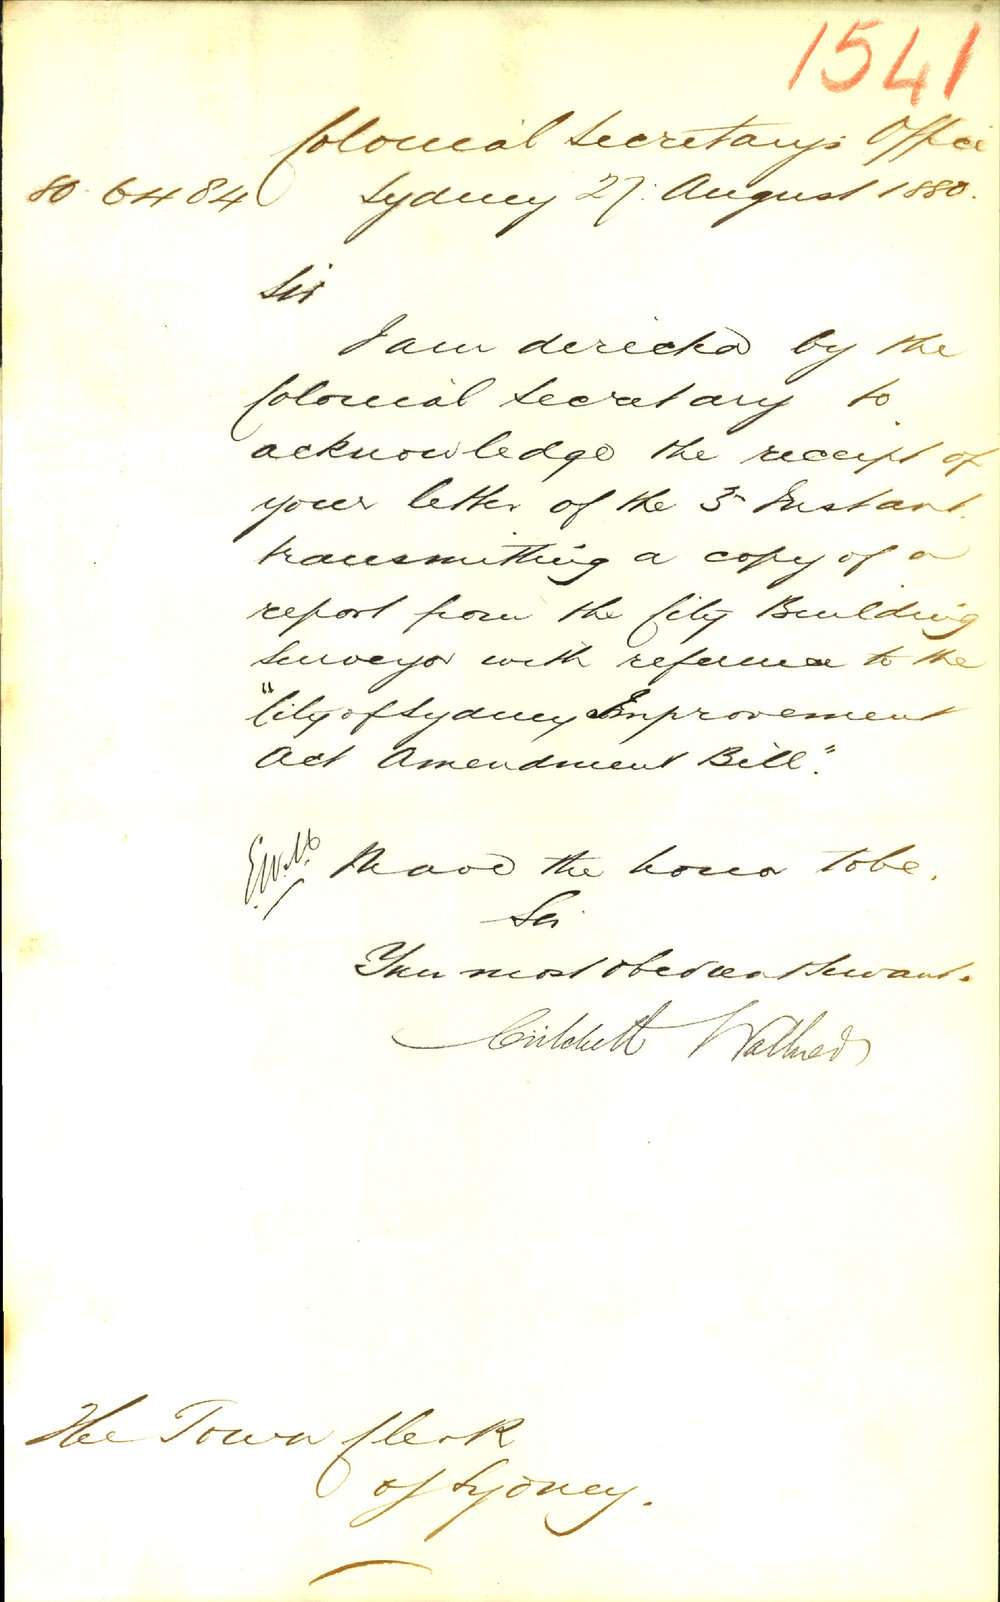 1541
Colonial Secretary's Office
80. 6484 Sydney 27. August 1880.
Sir
I am directed by the
Colonial Secretary to
acknowledge the receipt of
your letter of the 3 Instant
transmitting a copy of a
report from the City Building
Surveyor with reference to the
"City of Sydney Improvement
Act Amendment Bill".
E.W.M. I have the honor to be.
Sir
Your most obedient Servant.
Critchett Walker
The Town Clerk
of Sydney.